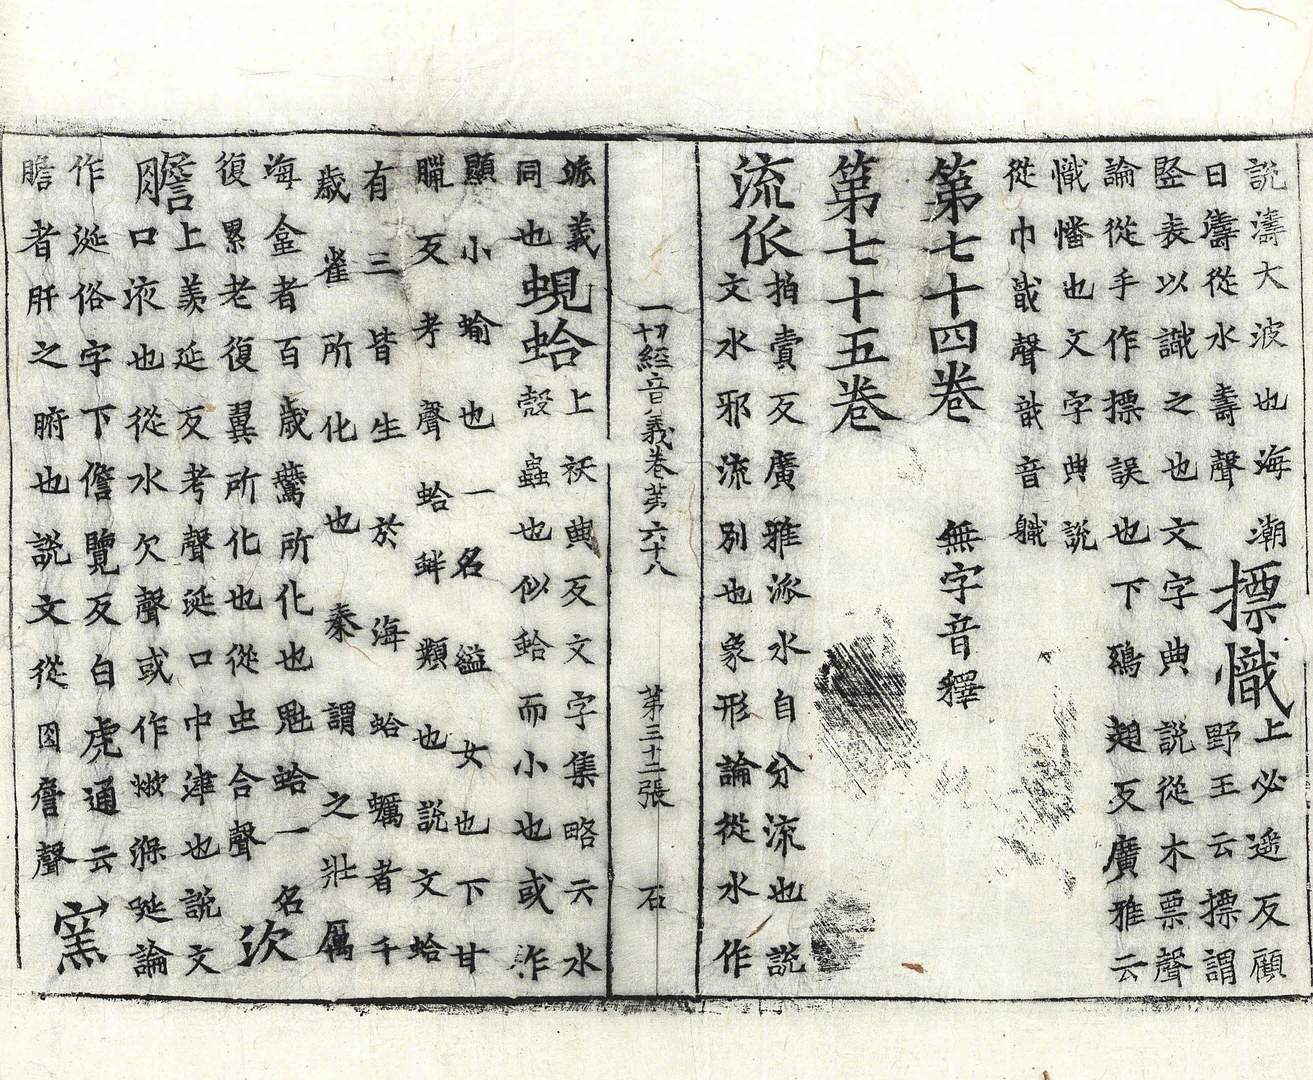 説濤大波也海潮
日濤從水壽聲
標幟
上必遥反顧
野王云摽謂
竪表以識之也文字典説從木票聲
論從手作摽誤也下鵄趐反廣雅云
幟幡也文字典説
從巾戠聲戠音軄
第七十四卷 無字音釋
第七十五卷
流𠂢
拍賣反廣雅派水自分流也説
文水邪流別也象形論從水作
一切經音義卷第六十八 第三十二張 石
派義
同也
蜆蛤
上袄典反文字集略云水
殼蟲也似蛤而小也或作
顯小蝓也一名縊女也下甘
臘反考聲蛤蚌類也説文蛤
有三皆生於海蛤蠣者千
歲雀所化也秦謂之壯厲
海盒者百歲鷰所化也魁蛤一名
復累老復翼所化也從虫合聲
㳄
上羡延反考聲㳄口中津也説文
口液也從水欠聲或作㳄㵪㳄論
作涎俗字下儋覽反白虎通云
膽
膽者肝之腑也説文從囟詹聲
窯